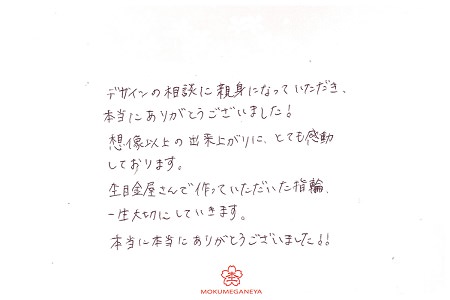 デザインの相談に親身になっていただき、
本当にありがとうございました!
想像以上の出来上がりに、とても感動
しております。
杢目金屋さんで作っていただいた指輪、
一生大切にしていきます。
本当に本当にありがとうございました!!
MOKUMEGANEYA